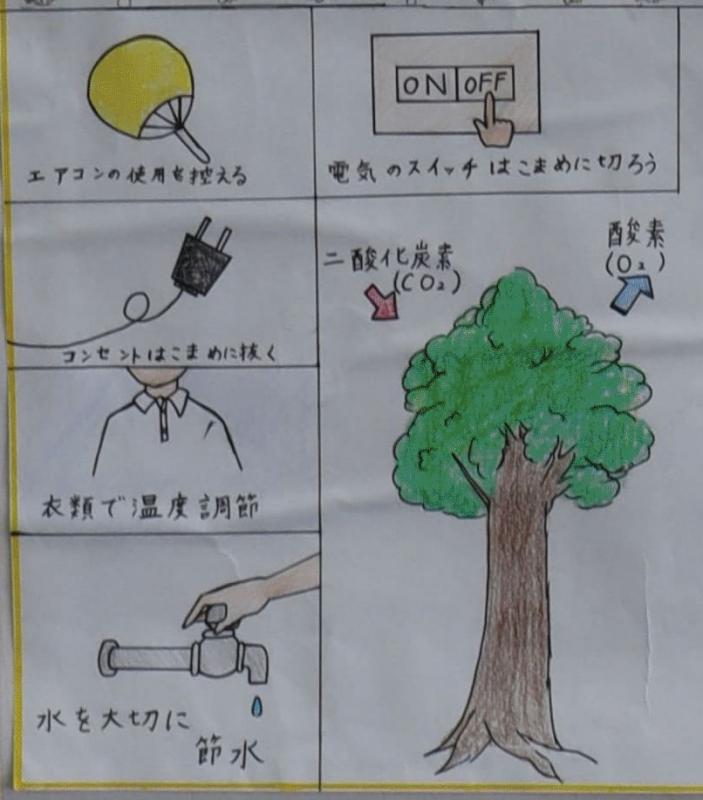 エアコンの使用を控える
ON OFF
電気のスイッチはこまめに切ろう
コンセントはこまめに抜く
衣類で温度調節
水を大切に
節水
二酸化炭素
(CO₂)
酸素
(O₂)